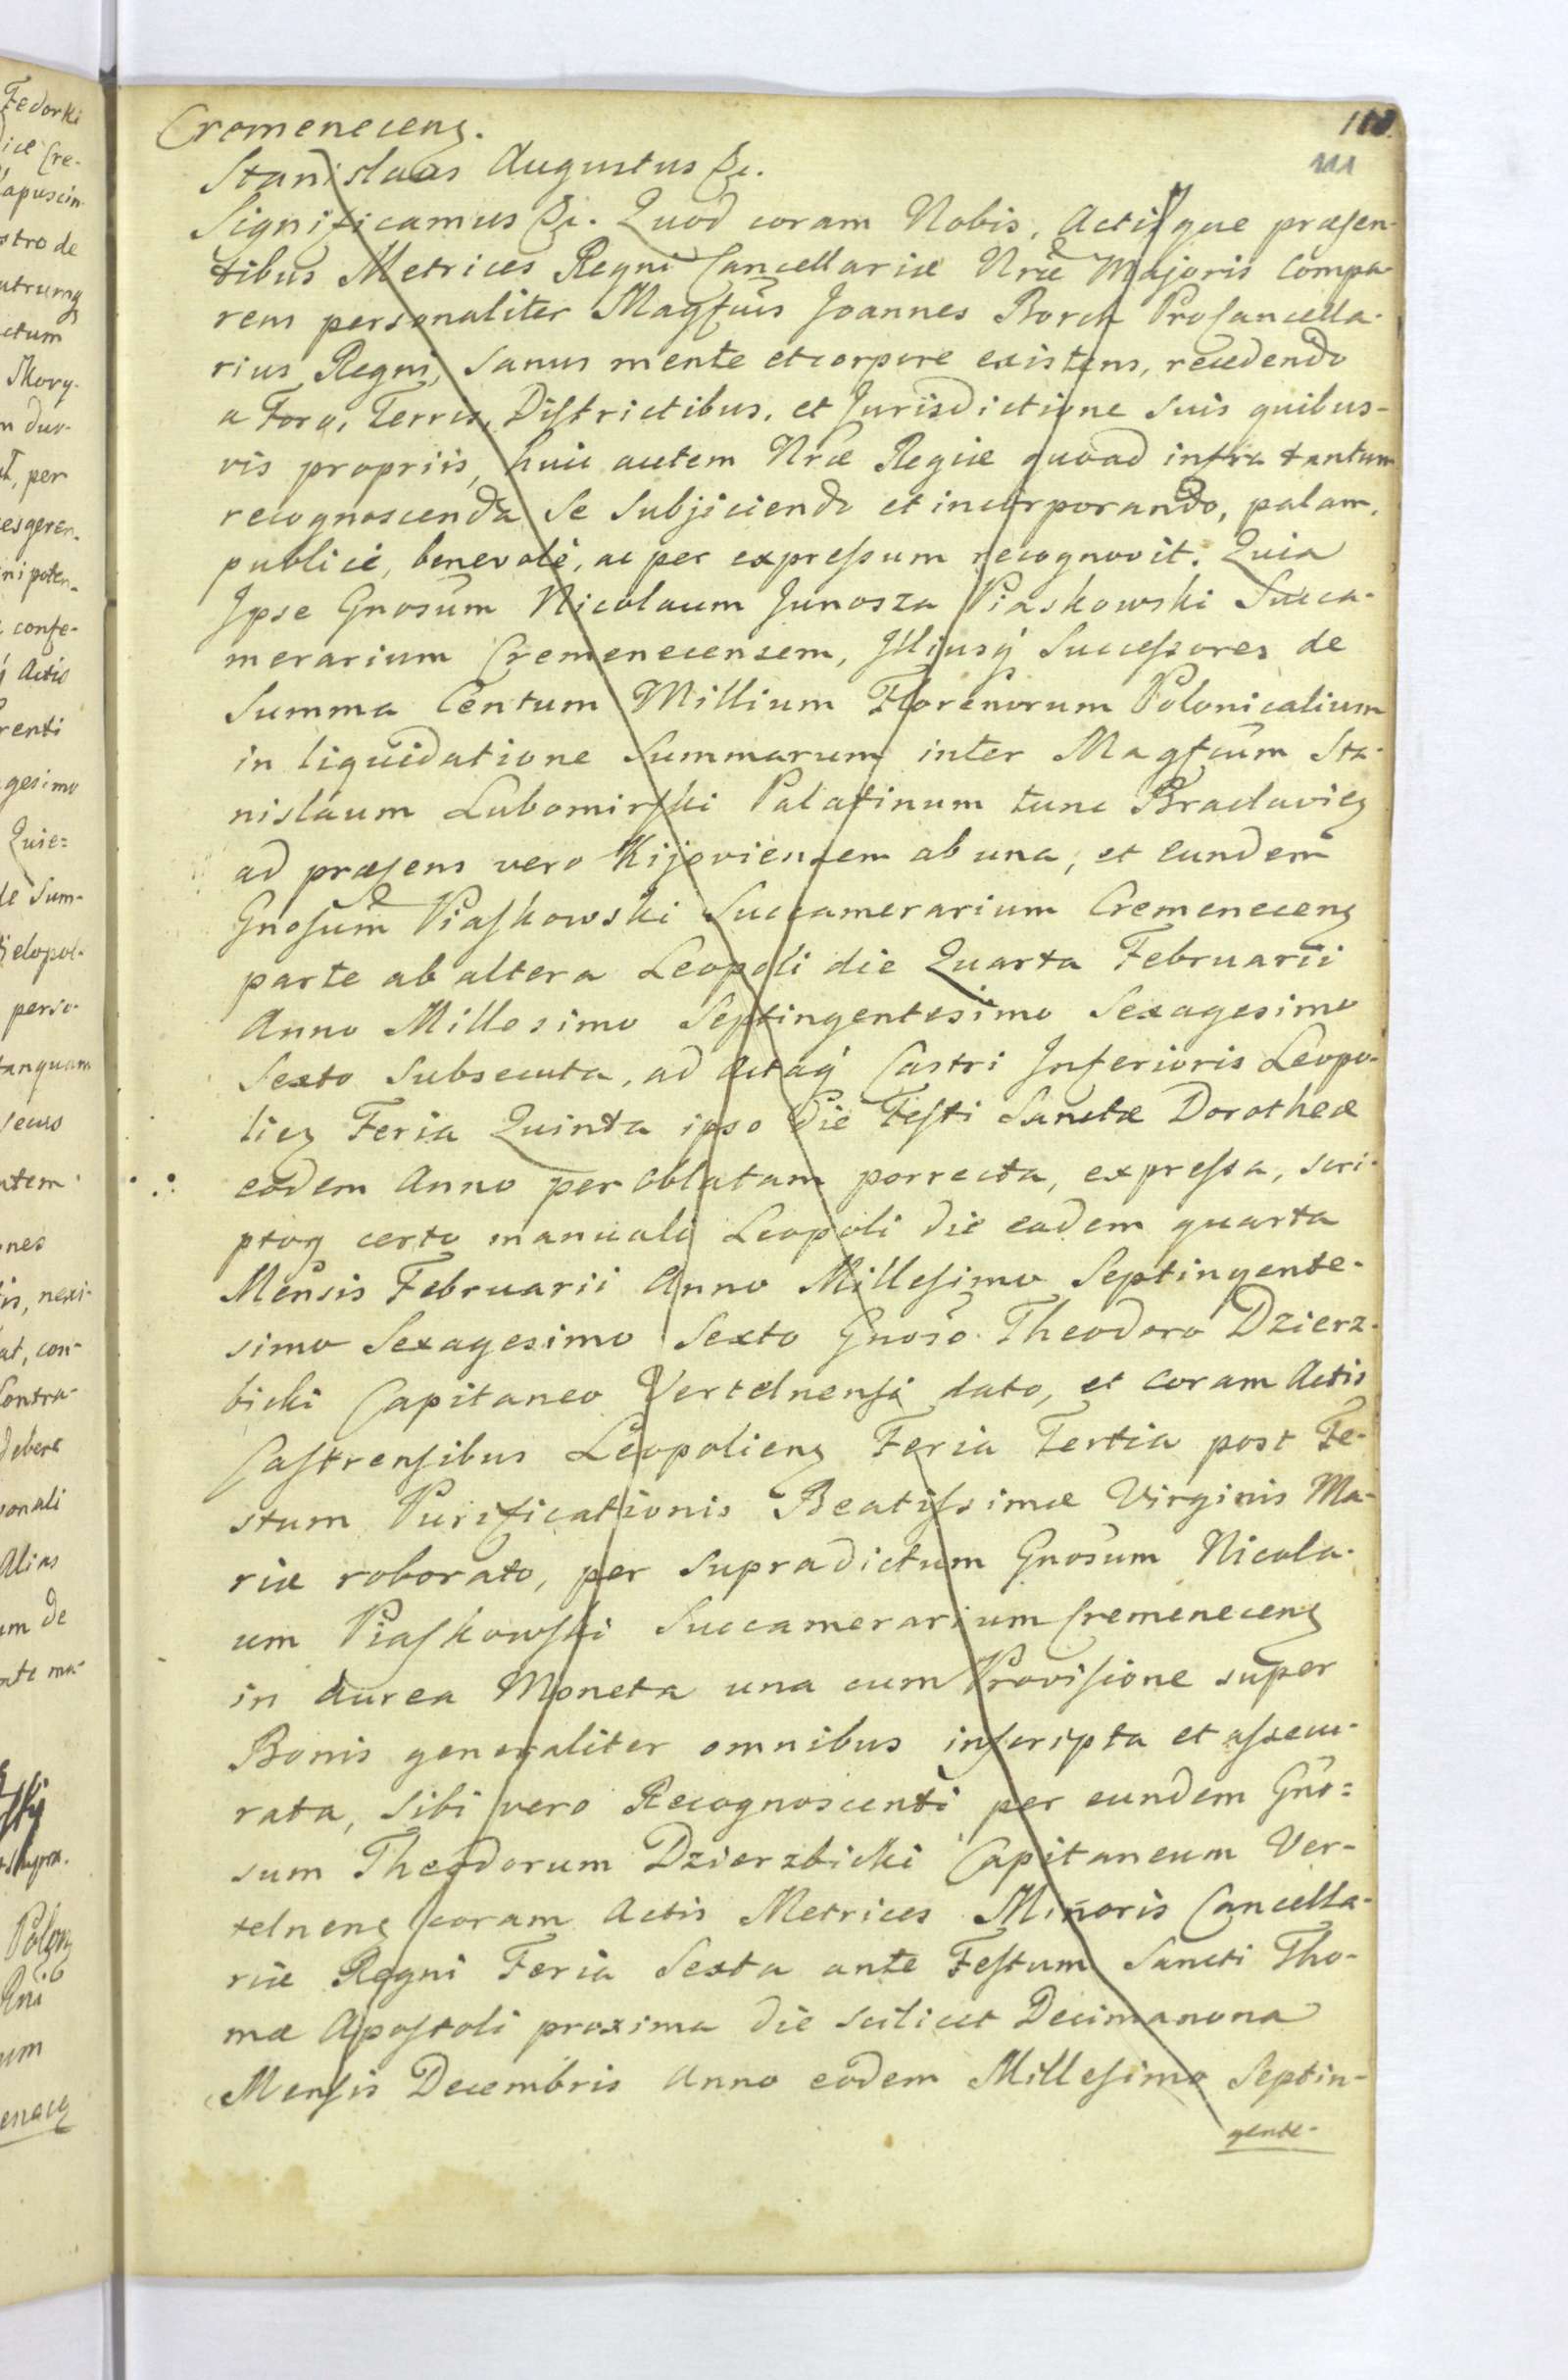 Cremeneceng.
110.
111
Stanislaus Augustus &c.
Significamus &c. Quod coram Nobis, Actisque præsen-
tibus Metrices Regni Cancellariæ Nræ Majoris compa-
rens personaliter Magfcus Joannes Borch Procancella-
rius Regni, sanus mente et corpore existens, recedendo
a Foro, Terris, Districtibus, et Jurisdictione suis quibus-
vis propriis, huic autem Nræ Regiæ quoad infra tantum
recognoscenda se subjiciendo et incorporando, palam,
publicè, benevolè, ac per expressum recognovit. Quia
Ipse Gnosum Nicolaum Junosza Piaskowski Succa-
merarium Cremenecensem, Illiusq Successores de
Summa Centum Millium Florenorum Polonicalium
in liquidatione Summarum inter Magfcum Sta-
nislaum Lubomirski Palatinum tunc Braclavieg
ad præsens vero Kijoviensem ab una, et eundem
Gnosum Piaskowski Succamerarium Cremeneceng
parte ab altera Leopoli die Quarta Februarii
Anno Millesimo Septingentesimo Sexagesimo
Sexto subsecuta, ad Actaq Castri Inferioris Leopo-
lieg Feria Quinta ipso die Festi Sanctæ Dorotheæ
eodem Anno per oblatam porrecta, expressa, scri-
ptoq certo manuali Leopoli die eadem quarta
Mensis Februarii Anno Millesimo Septingente-
simo Sexagesimo Sexto Gnoso Theodoro Dzierz-
bicki Capitaneo Vertelnensi dato, et coram Actis
Castrensibus Leopolieng Feria Tertia post Fe-
stum Purificationis Beatissimæ Virginis Ma-
riæ roborato, per supradictum Gnosum Nicola-
um Piaskowski Succamerarium Cremeneceng
in aurea Moneta una cum Provisione super
Bonis generaliter omnibus inscripta et assecu-
rata, sibi vero Recognoscenti per eundem Gno=
sum Theodorum Dzierzbicki Capitaneum Ver-
telneng coram Actis Metrices Minoris Cancella-
riæ Regni Feria Sexta ante Festum Sancti Tho-
mæ Apostoli proxima die scilicet Decimanona
Mensis Decembris Anno eodem Millesimo Septin-
gente-